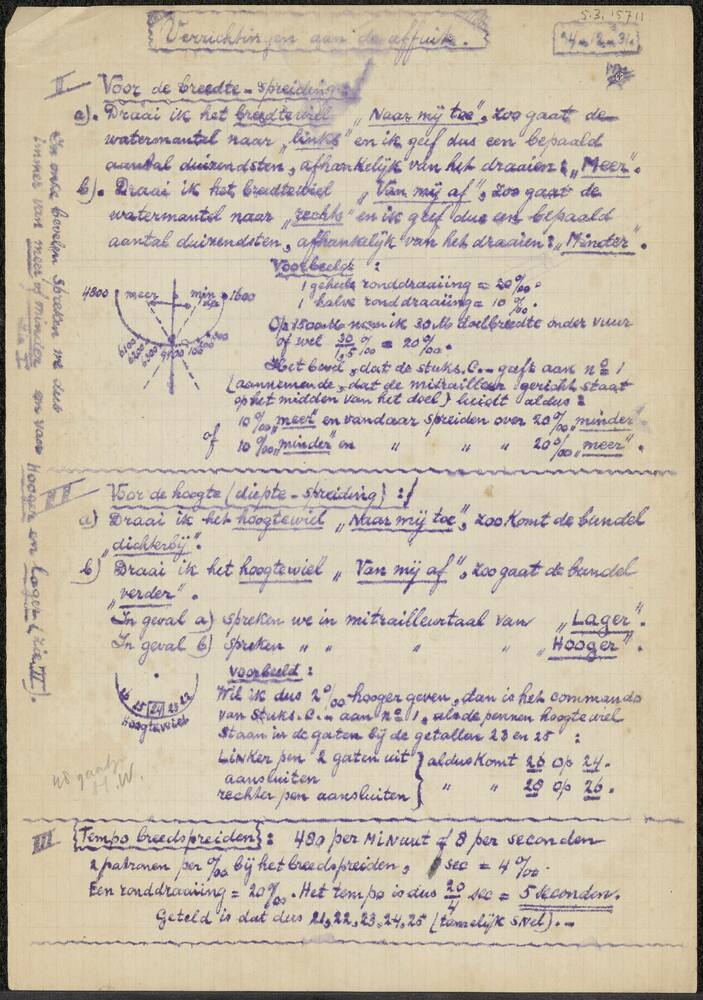 5.3.15711
Verrichtingen aan de affuit.
24-12-31.
I Voor de breedte-spreiding:
a). Draai ik het breedtewiel "Naar mij toe", zoo gaat de
watermantel naar "links" en ik geef dus een bepaald
aantal duizendsten, afhankelijk van het draaien: "Meer".
b). Draai ik het breedtewiel "Van mij af", zoo gaat de
watermantel naar "rechts" en ik geef dus een bepaald
aantal duizendsten, afhankelijk van het draaien: "Minder".
Voorbeeld:
1 geheele ronddraaiing = 20 ‰.
1 halve ronddraaiing = 10 ‰.
4800 meer min 1600
Op 1500 M neem ik 30 M doelbreedte onder vuur
of wel 30/1,5 ‰ = 20 ‰.
Het bevel, dat de stuks.C. geeft aan no 1
(aannemende, dat de mitrailleur gericht staat
op het midden van het doel) luidt aldus:
10 ‰ "meer" en vandaar spreiden over 20 ‰ "minder"
of 10 ‰ "minder" en " " " 20 ‰ "meer".
In onze bevelen spreken we dus
immer van meer of minder en van Hooger en Lager (zie II).
zie I
II Voor de hoogte (diepte-spreiding):
a) Draai ik het hoogtewiel "Naar mij toe", zoo komt de bundel
"dichterbij".
b) Draai ik het hoogtewiel "Van mij af", zoo gaat de bundel
"verder".
In geval a) spreken we in mitrailleurtaal van "Lager".
In geval b) spreken " " " " "Hooger".
Voorbeeld:
Wil ik dus 2 ‰ hooger geven, dan is het commando
van Stuks.C. aan no 1, als de pennen hoogtewiel
staan in de gaten bij de getallen 23 en 25:
26 25 24 23 22
Hoogtewiel
Linker pen 2 gaten uit
aansluiten
rechter pen aansluiten
aldus komt 26 op 24.
" " 28 op 26.
48 gaatjes
H.W.
III Tempo breedspreiden: 480 per Minuut of 8 per seconden
2 patronen per ‰ bij het breedspreiden, 1 sec = 4 ‰.
Een ronddraaiing = 20 ‰. Het tempo is dus 20/4 sec = 5 seconden.
Geteld is dat dus 21, 22, 23, 24, 25 (tamelijk snel).